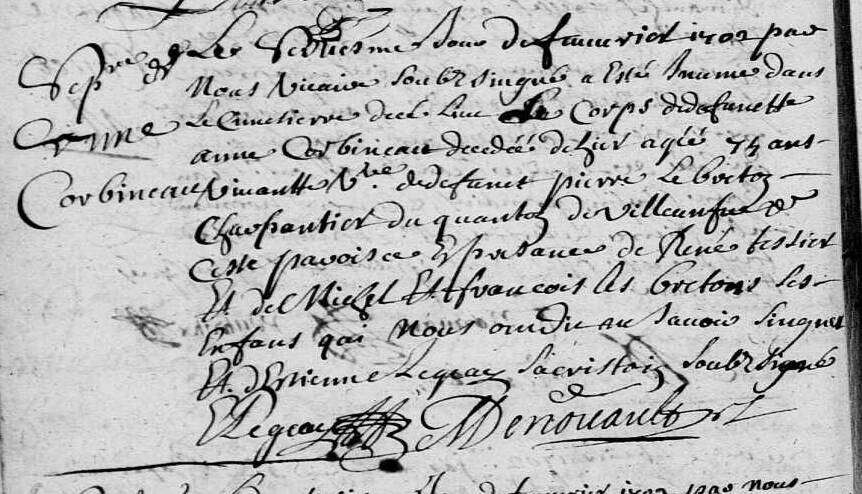 Sep.re de
Anne
Corbineau
Le Sesiesme Jour de feuurier 1702 par
Nous Vicaire soubzsingné a esté Inumé dans
le Cimetierre de ce lieu le Corps de defunctte
anne Corbineau decedée d'hier agée 74 ans
viuantte V.ve de defunct pierre le breton
Charpantier du quanton de Villeneufue de
ceste paroisse En presance de René tessier
Et de Michel Et francois les bretons ses
Enfans qui Nous ont dit ne scauoir singner
Et d'Estienne Legeay Sacristain soubzsigné
E Legeay MDenouault
feuurier 1702 par nous